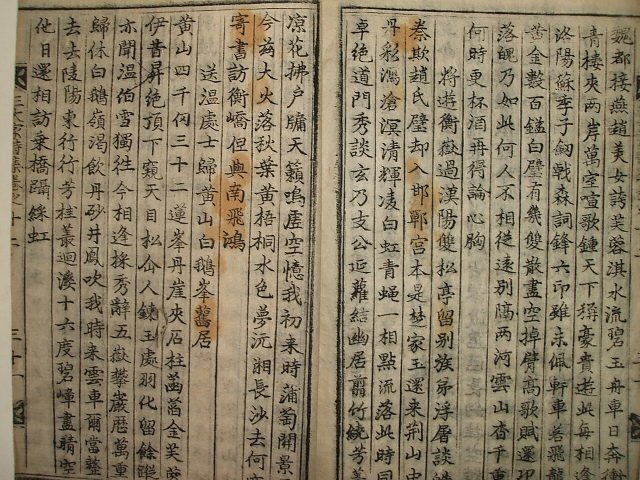 魏郡接燕趙美女誇芙蓉淇水流碧玉舟車日奔衝
青樓夾兩岸萬室喧歌鍾天下稱豪貴遊此每相逢
洛陽蘇季子劍戟森詞鋒六印雖未佩軒車若飛龍
黃金數百鎰白璧有幾雙散盡空掉臂高歌賦還卭
落魄乃如此何人不相從遠別隔兩河雲山杳千重
何時更杯酒再得論心胸
將遊衡嶽過漢陽雙松亭留別族弟浮屠談皓
秦欺趙氏璧却入邯鄲宮本是楚家玉還來荆山中
丹彩瀉滄溟清輝凌白虹青蠅一相點流落此時同
卓絶道門秀談玄乃支公延蘿結幽居翦竹繞芳
凉花拂戶牖天籟鳴虛空憶我初來時蒲萄開景
今茲大火落秋葉黃梧桐水色夢沅湘長沙去何
寄書訪衡嶠但與南飛鴻
送溫處士歸黃山白鵝峯舊居
黃山四千仞三十二蓮峯丹崖夾石柱菡萏金芙蓉
伊昔昇絶頂下窺天目松仚人鍊玉處羽化留餘蹤
亦聞溫伯雪獨往今相逢採秀辭五嶽攀巖歷萬重
歸休白鵝嶺渴飲丹砂井鳳吹我時來雲車爾當整
去去陵陽東行行芳桂叢迴溪十六度碧嶂盡晴空
他日還相訪乘橋躡綵虹
十二
三十一